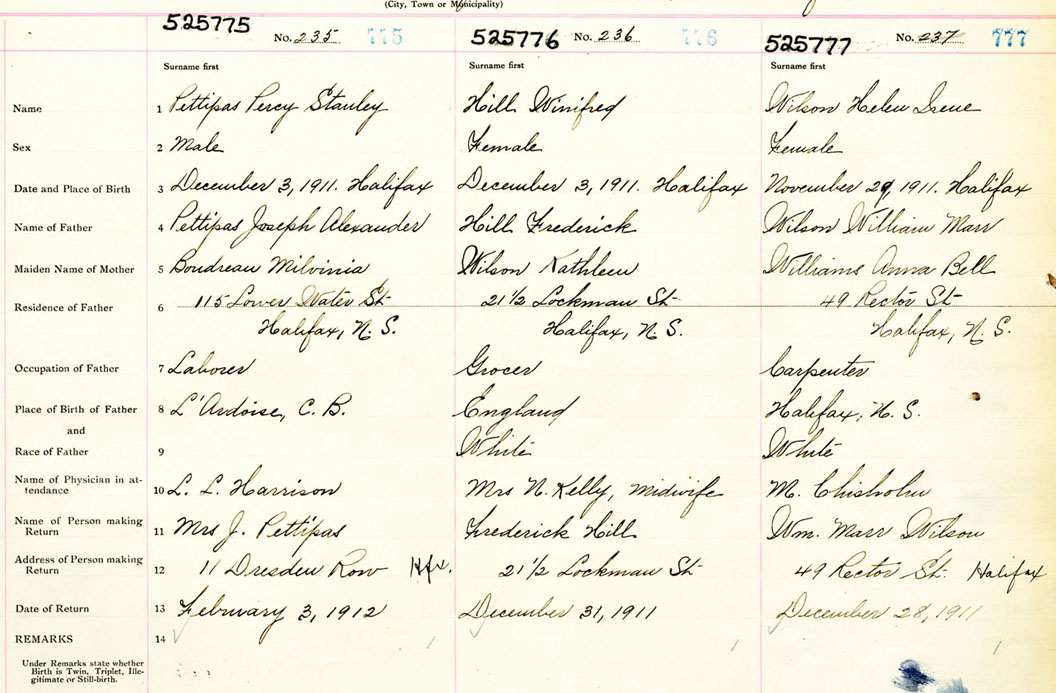 (City, Town or Municipality)
525775 No. 235 775 525776 No. 236 776 525777 No. 237 777
Surname first Surname first Surname first
Name 1 Pettipas Percy Stanley Hill Winifred Wilson Helen Irene
Sex 2 Male Female Female
Date and Place of Birth 3 December 3, 1911. Halifax December 3, 1911. Halifax November 29, 1911. Halifax
Name of Father 4 Pettipas Joseph Alexander Hill Frederick Wilson William Marr
Maiden Name of Mother 5 Boudreau Milvinia Wilson Kathleen Williams Anna Bell
Residence of Father 6 115 Lower Water St 21 1/2 Lockman St 49 Rector St
Halifax, N. S. Halifax, N. S. Halifax, N. S.
Occupation of Father 7 Laborer Grocer Carpenter
Place of Birth of Father 8 L'Ardoise, C. B. England Halifax, N. S.
and
Race of Father 9 White White
Name of Physician in at-
tendance 10 L. L. Harrison Mrs N. Kelly, midwife M. Chisholm
Name of Person making
Return 11 Mrs J. Pettipas Frederick Hill Wm. Marr Wilson
Address of Person making
Return 12 11 Dresden Row Hfx. 21 1/2 Lockman St 49 Rector St. Halifax
Date of Return 13 February 3, 1912 December 31, 1911 December 28, 1911
REMARKS 14
Under Remarks state whether
Birth is Twin, Triplet, Ille-
gitimate or Still-birth.